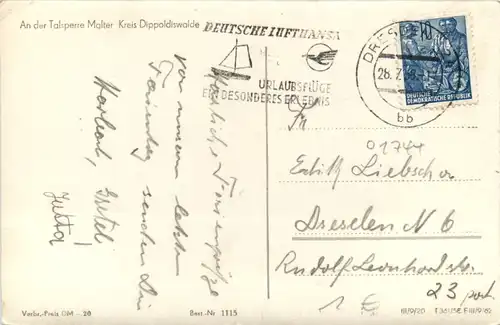 An der Talsperre Malter Kreis Dippoldiswalde
DEUTSCHE LUFTHANSA
URLAUBSFLÜGE
EIN BESONDERES ERLEBNIS
DRESDEN
28.7.58
bb
10
DEUTSCHE
DEMOKRATISCHE REPUBLIK
Herzliche Feriengrüße
von unserem letzten
Ferientag senden Dir
Herbert, Gretel
Jutta
01744
Edith Liebscher
Dresden N 6
Rudolf Leonhard str.
23 part
1 €
Verbr.-Preis DM -.20
Best.-Nr 1115
III/9/20